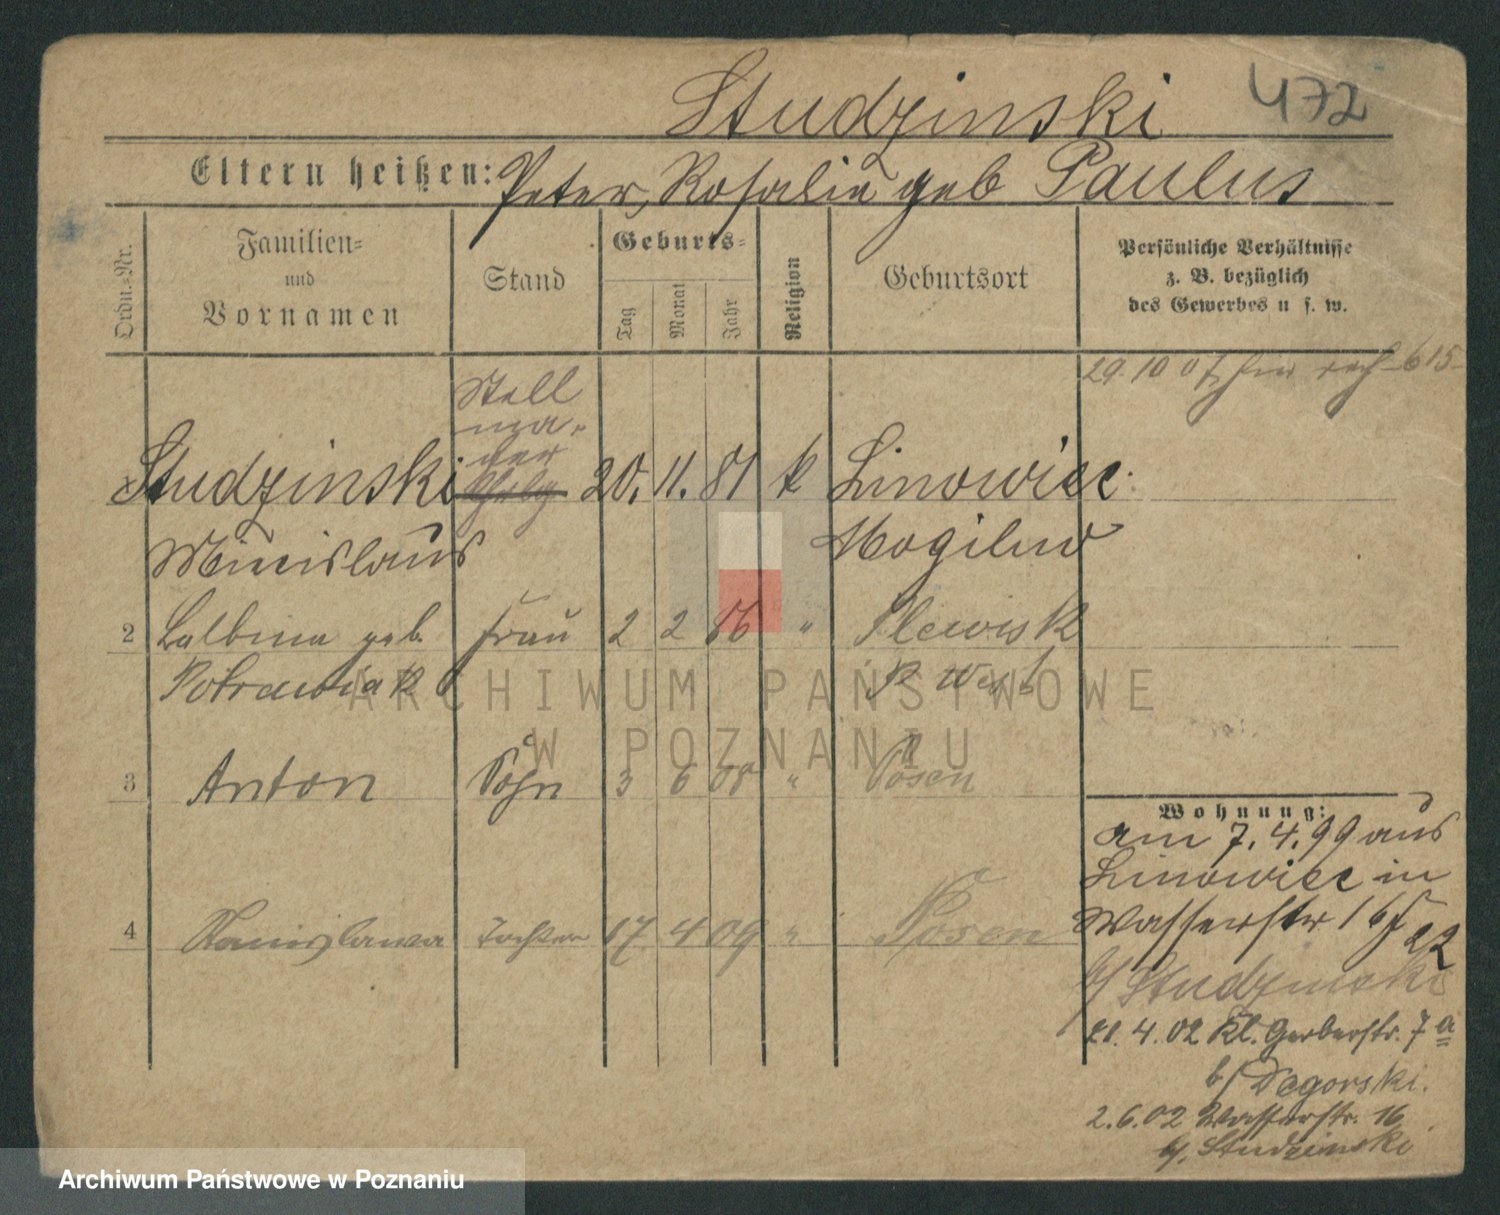 Studzinski 472
Eltern heißen: Peter, Rosalie geb Paulus
Ordn.-Nr.
Familien-
und
Vornamen
Stand
Geburts-
Tag
Monat
Jahr
Religion
Geburtsort
Persönliche Verhältnisse
z. B. bezüglich
des Gewerbes u. s. w.
29. 10 07
615
Stell
ma-
cher
Studzinski 20. 11. 81 k Linowiec
Miecislaus Mogilno
2 Balbina geb. Frau 2 2 86 " Plewisk
Potrawiak P. West
3 Anton Sohn 3 6 08 " Posen
4 Stanislawa Tochter 17 4 09 " Posen
Wohnung:
am 7. 4. 99 aus
Linowiec in
Wasserstr 16
22
b/ Studzinski
21. 4. 02 Kl. Gerberstr. 7a
b/ Degorski.
2. 6. 02 Wasserstr. 16
b/. Studzinski
ARCHIWUM PAŃSTWOWE
W POZNANIU
Archiwum Państwowe w Poznaniu